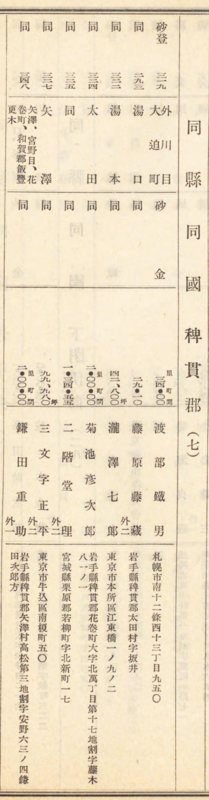 同縣同國稗貫郡(七)
砂登 三二九 外川目 大迫町 砂金 里町間 三〇四.〇〇 渡部鐵男 札幌市南十二條西十三丁目九五〇
同 三九三 湯口 同 二九.〇一 藤原藤藏 外二 岩手縣稗貫郡太田村字坂井
同 三三二 湯本 同 坪 四二、八〇〇 瀧澤七郎 東京市本所區江東橋一ノ九ノ二
同 三三四 太田 同 里町間 二.〇〇.〇〇 菊池彥次郎 岩手縣稗貫郡花卷町大字北萬丁目第十七地割字藤木八一ノ一
同 三三五 同 同 一.三四.五五 二階堂理 外二 宮城縣栗原郡若柳町字北新町一七
同 三三七 矢澤 同 坪 九九九、九九〇 三文字正平 外二 東京市牛込區南榎町五〇
同 三四八 矢澤、宮野目、花卷町、和賀郡飯豐、更木 同 里町間 二.〇〇.〇〇 鎌田重助 外一 岩手縣稗貫郡矢澤村高松第三地割字安野六三ノ四鎌田次郎方